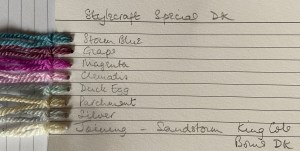 Stylecraft Special DK
Storm Blue
Grape
Magenta
Clematis
Duck Egg
Parchment
Silver
Sandstorm King Cole
Bomië DK